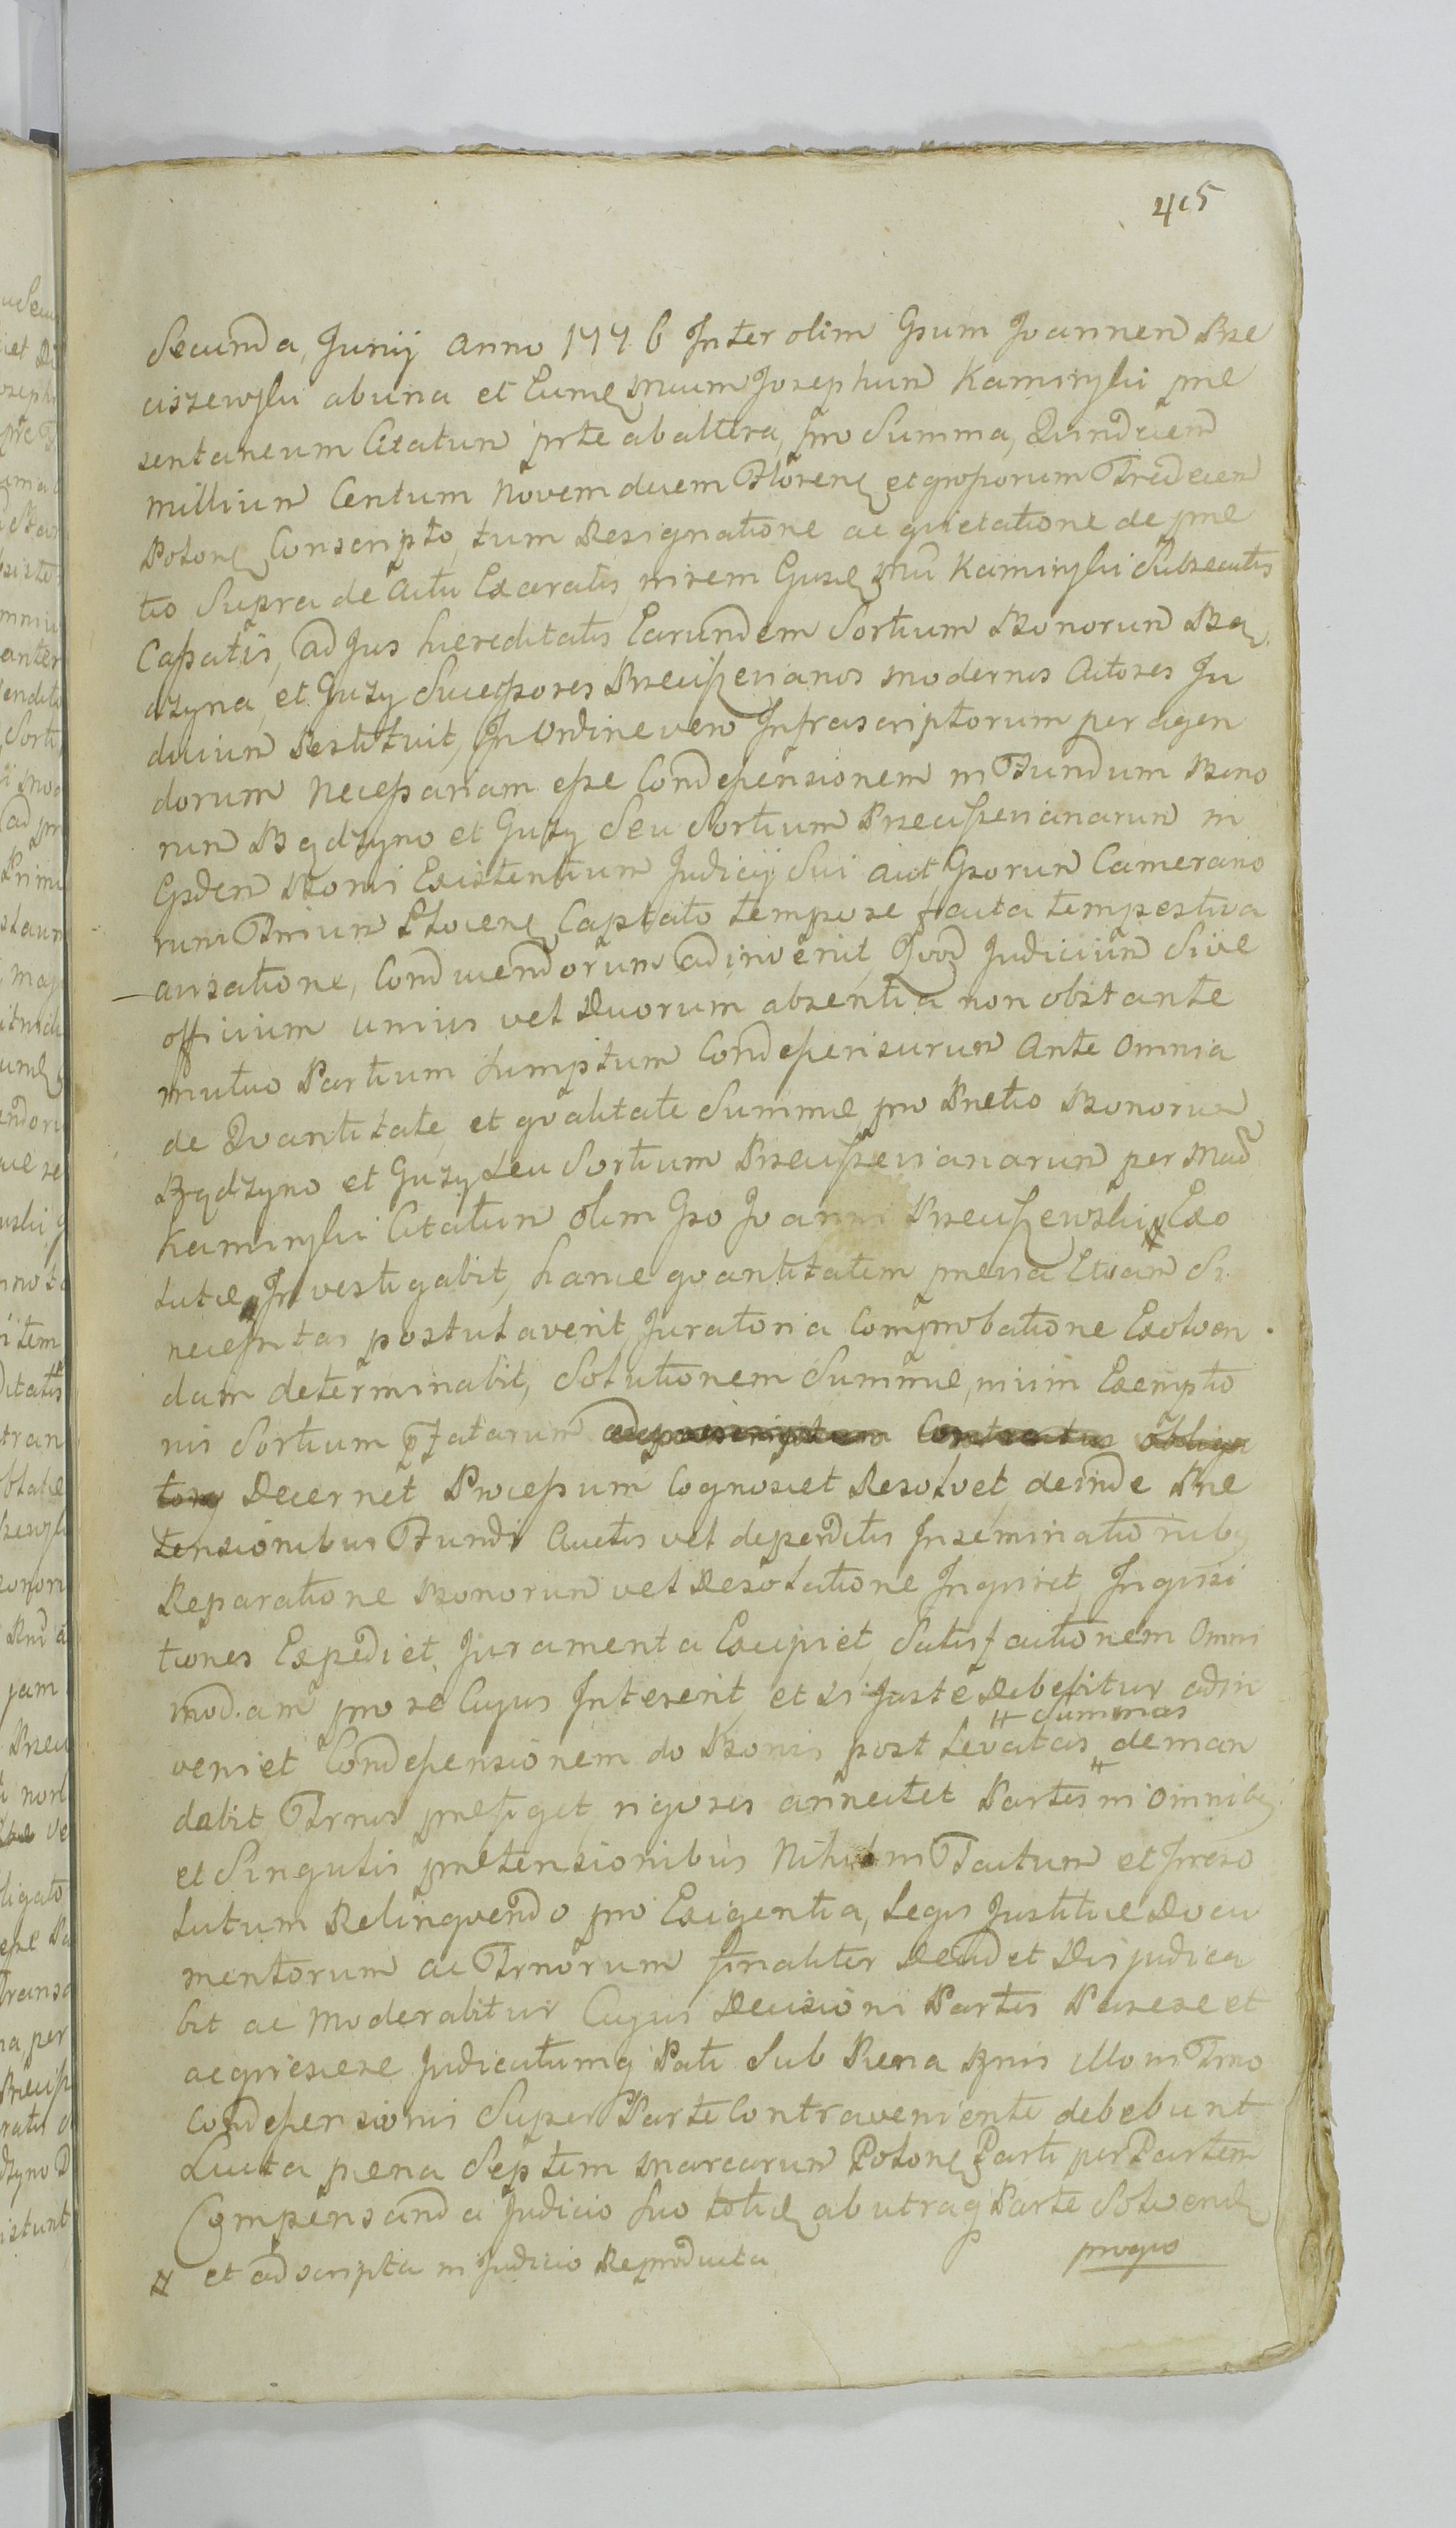 405
Secunda, Junij Anno 1776 Inter olim Gsum Joannem Brze
ciszewski ab una et Eundē Mcum Josephum Kaminski præ
sentaneum Citatum prte ab altera, pro Summa, Quindecim
Millium Centum Novemdecem Florenɇ et grossorum Tredecem
Polonɇ Conscripto, tum Resignatione ac quietatione de præ
tio Supra de Actu Exaratis, in rem Gsæ Mci Kaminski Subsecutis
Cassatis, ad Jus hæreditatis Earundem Sortium Bonorum Bą
dzyna, et Guzy Successores Brzeciszevianos modernos Actores Ju
dicium Restituit, In Ordine vero Infrascriptorum per agen
dorum Necessariam esse Condescensionem in Fundum Bono
rum Bądzyno et Guzy Seu Sortium Brzeciszevianarum in
Gsdem Bonis Existentium Judicij Sui aut Gsorum Camerario
rum Trium Plocenɇ Captato tempore facta tempestiva
avisatione, Conducendorum adinvenit, Quod Judicium Sive
officium unius vel Duorum absentia non obstante
mutuo Partium Sumptum Condescensurum Ante Omnia
de Quantitate, et qvalitate Summæ pro Pretio Bonorum
Bądzyno et Guzy Seu Sortium Brzeciszevianarum per Mcū
Kaminski Citatum olim Gso Joanni Brzeciszewski # Exo
lutæ Investigabit, hancæ qvantitatem prævia Etiam Si
necessitas postulaverit Juratoria Comprobatione Exolven
dam determinabit, Solutionem Summæ, nium Exemptio
nis Sortium pfatarum ad proscriptum Contractus obliga
tory Decernet Processum Cognoscet Resolvet, deinde Præ
tensionibus Fundi Auctis vel deperditis Inseminationib9
Reparatione Bonorum vel Desolatione Inquiret, Inquisi
tiones Expediet, Juramenta Excipiet, Satisfactionem Omni
modam pro re Cujus Intererit, et Si Juste Debebitur adin
# Summas
veniet Condescensionem do Bonis post Levatas # deman
dabit, Trnos præfiget rigores annectet Partes in Omnib9
et Singulis prætensionibus Nihil in Tactum et Irreso
lutum Relinqvendo pro Exigentia, Legis Justitiæ Docu
mentorum ac Trnorum finaliter Decidet Disjudica
bit ac Moderabitur Cujus Decisioni Partes Parere et
acqviescere Judicatumq Pati Sub Pæna Bnis illo in Trno
Condescensionis Super Parte Contraveniente debebunt
Lucta pæna Septem Marcarum Polonɇ Parti per Partem
Compensanda Judicio Suo totiɇ ab utraq Parte Solvenɇ
proqvo
# et ad scripta in Judicio Reproducta